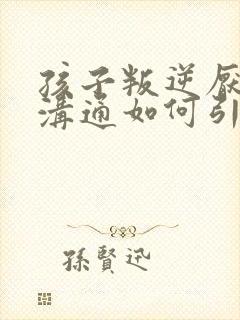 孩子叛逆厌
溝通如何引
孫賢迅